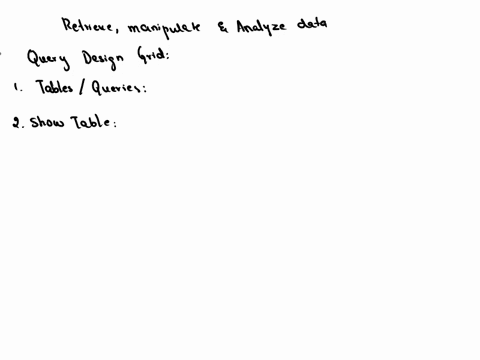 Retrieve, manipulate & Analyze data
Query Design Grid:
1. Tables / Queries:
2. Show Table: